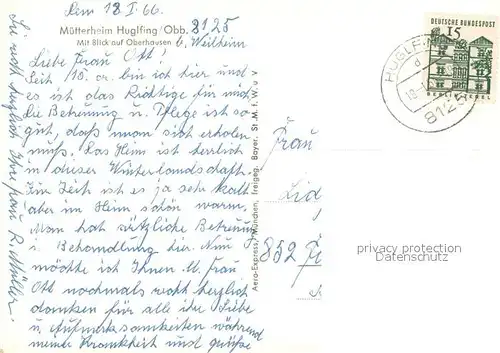 Den 18 I. 66.
Mütterheim Huglfing/Obb. 8125
Mit Blick auf Oberhausen b. Weilheim
Liebe Frau Ott!
Seit 10. er. bin ich hier und
es ist das Richtige für mich
die Betreuung u. Pflege ist so
gut, daß man sich erholen
muß. Das Heim ist herrlich
in dieser Winterlandschaft.
Zur Zeit ist es ja sehr kalt
aber im Heim schön warm.
Man hat ärztliche Betreuung
u. Behandlung hier. Nun
möchte ich Ihnen lb. Frau
Ott nochmals recht herzlich
danken für alle ihre Liebe
u. Aufmerksamkeiten während
meiner Krankheit und grüße
Sie recht herzlich Ihre Frau R. Müller.
Aero-Express, München, freigeg. Bayer. St. M. f. W. u. V
DEUTSCHE BUNDESPOST
15
BERLIN TEGEL
HUGLFING
8125
Frau
852
privacy protection
watermark